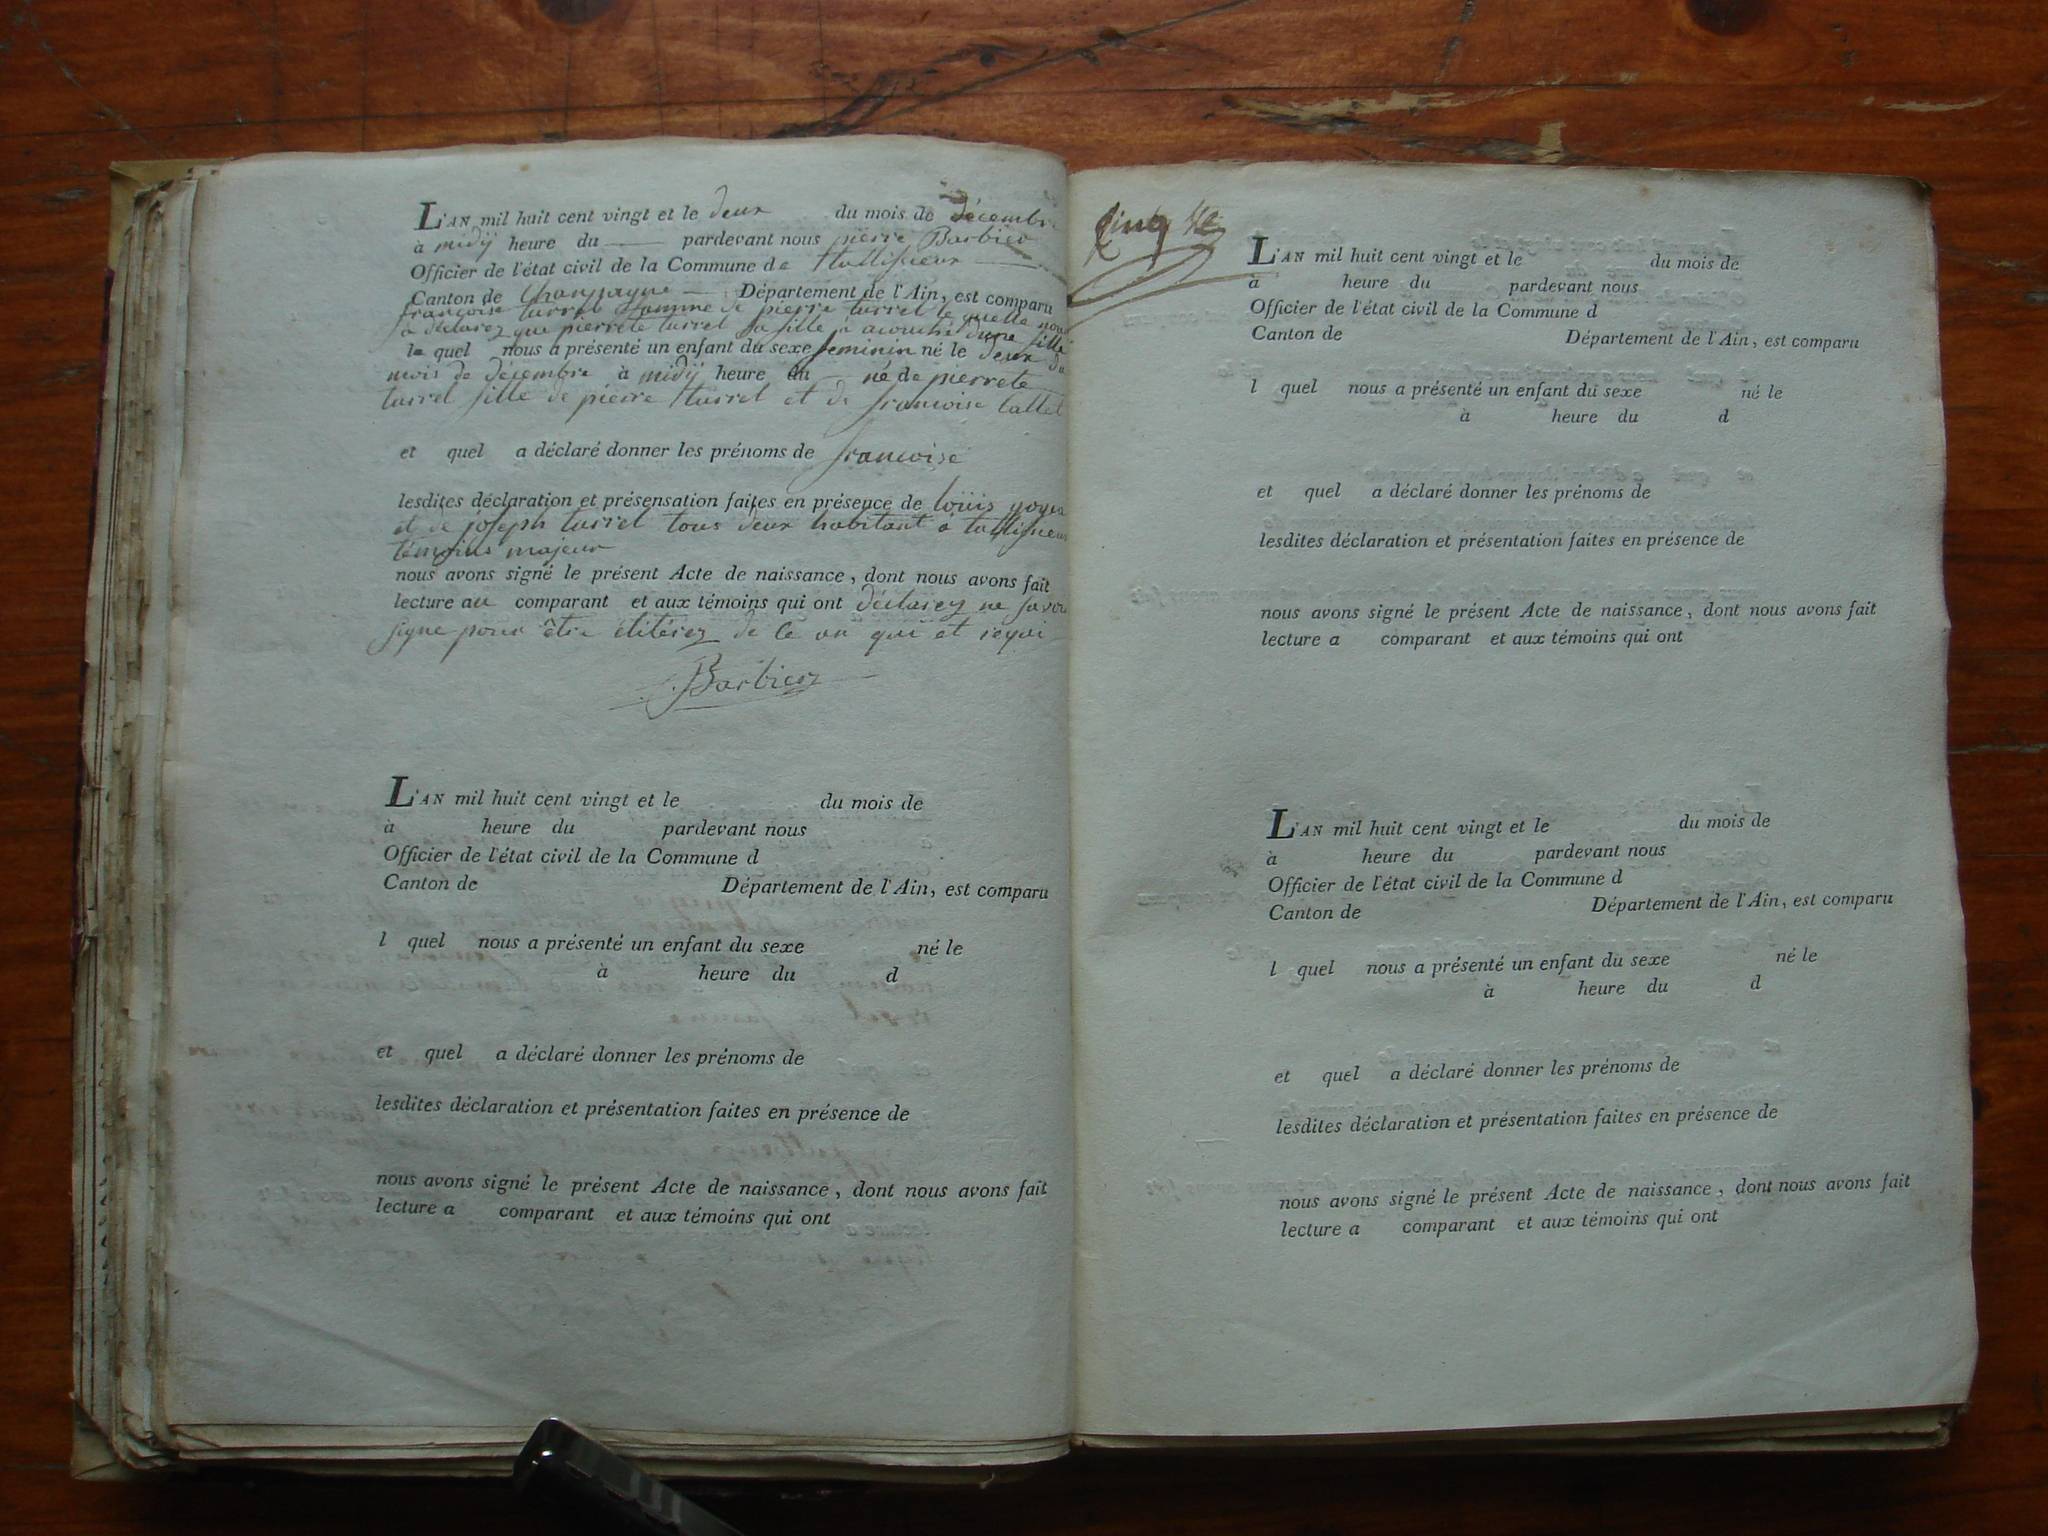 L'AN mil huit cent vingt et le deux du mois de décembre
à midÿ heure du pardevant nous pierre Barbier
Officier de l'état civil de la Commune de
Canton de Champagne Département de l'Ain, est comparu
françoise turrel femme de pierre turrel la quelle nous
a déclarez que pierrete turrel sa fille a acouché d'une fille
la quel nous a présenté un enfant du sexe feminin né le deux du
mois de décembre à midÿ heure du né de pierrete
turrel fille de pierre turrel et de françoise Callet
et quel a déclaré donner les prénoms de françoise
lesdites déclaration et présensation faites en présence de loüis
et de joseph turrel tous deux habitant à
témoins majeur
nous avons signé le présent Acte de naissance, dont nous avons fait
lecture au comparant et aux témoins qui ont déclarez ne savoir
signe pour être de ce qui et requi
Barbier
L'AN mil huit cent vingt et le du mois de
à heure du pardevant nous
Officier de l'état civil de la Commune d
Canton de Département de l'Ain, est comparu
l quel nous a présenté un enfant du sexe né le
à heure du d
et quel a déclaré donner les prénoms de
lesdites déclaration et présentation faites en présence de
nous avons signé le présent Acte de naissance, dont nous avons fait
lecture a comparant et aux témoins qui ont
Cinq
L'AN mil huit cent vingt et le du mois de
à heure du pardevant nous
Officier de l'état civil de la Commune d
Canton de Département de l'Ain, est comparu
l quel nous a présenté un enfant du sexe né le
à heure du d
et quel a déclaré donner les prénoms de
lesdites déclaration et présentation faites en présence de
nous avons signé le présent Acte de naissance, dont nous avons fait
lecture a comparant et aux témoins qui ont
L'AN mil huit cent vingt et le du mois de
à heure du pardevant nous
Officier de l'état civil de la Commune d
Canton de Département de l'Ain, est comparu
l quel nous a présenté un enfant du sexe né le
à heure du d
et quel a déclaré donner les prénoms de
lesdites déclaration et présentation faites en présence de
nous avons signé le présent Acte de naissance, dont nous avons fait
lecture a comparant et aux témoins qui ont